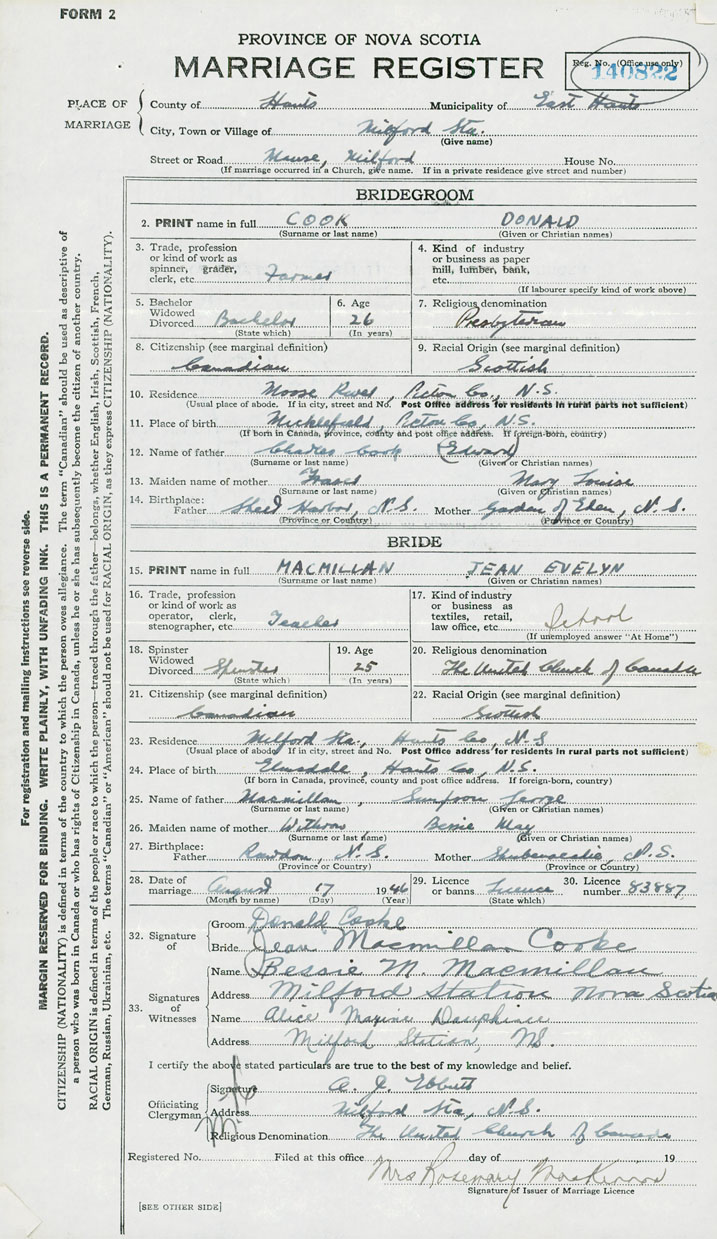 FORM 2
PROVINCE OF NOVA SCOTIA
MARRIAGE REGISTER
Reg. No. (Office use only)
140822
PLACE OF MARRIAGE
County of Hants Municipality of East Hants
City, Town or Village of Milford Sta.
(Give name)
Street or Road Manse, Milford House No.
(If marriage occurred in a Church, give name. If in a private residence give street and number)
BRIDEGROOM
2. PRINT name in full COOK DONALD
(Surname or last name) (Given or Christian names)
3. Trade, profession or kind of work as spinner, grader, clerk, etc. Farmer
4. Kind of industry or business as paper mill, lumber, bank, etc.
(If labourer specify kind of work above)
5. Bachelor Widowed Divorced Bachelor
(State which)
6. Age 26
(In years)
7. Religious denomination
Presbyterian
8. Citizenship (see marginal definition)
Canadian
9. Racial Origin (see marginal definition)
Scottish
10. Residence Moose River, Pictou Co., N.S.
(Usual place of abode. If in city, street and No. Post Office address for residents in rural parts not sufficient)
11. Place of birth Pictou Co, N.S.
(If born in Canada, province, county and post office address. If foreign-born, country)
12. Name of father Charles Cook (Edward)
(Surname or last name) (Given or Christian names)
13. Maiden name of mother Fraser Mary Louise
(Surname or last name) (Given or Christian names)
14. Birthplace: Father Sheet Harbor, N.S. Mother Garden of Eden, N.S.
(Province or Country) (Province or Country)
BRIDE
15. PRINT name in full MACMILLAN JEAN EVELYN
(Surname or last name) (Given or Christian names)
16. Trade, profession or kind of work as operator, clerk, stenographer, etc. Teacher
17. Kind of industry or business as textiles, retail, law office, etc. School
(If unemployed answer "At Home")
18. Spinster Widowed Divorced Spinster
(State which)
19. Age 25
(In years)
20. Religious denomination
The United Church of Canada
21. Citizenship (see marginal definition)
Canadian
22. Racial Origin (see marginal definition)
Scottish
23. Residence Milford Sta., Hants Co, N.S
(Usual place of abode. If in city, street and No. Post Office address for residents in rural parts not sufficient)
24. Place of birth Elmsdale, Hants Co, N.S.
(If born in Canada, province, county and post office address. If foreign-born, country)
25. Name of father Macmillan, Simpson George
(Surname or last name) (Given or Christian names)
26. Maiden name of mother Withrow Bessie May
(Surname or last name) (Given or Christian names)
27. Birthplace: Father Rawdon, N.S. Mother Shubenacadie, N.S.
(Province or Country) (Province or Country)
28. Date of marriage August 17 1946
(Month by name) (Day) (Year)
29. Licence or banns Licence
(State which)
30. Licence number 83887
32. Signature of
Groom Donald Cooke
Bride Jean Macmillan Cooke
33. Signatures of Witnesses
Name Bessie M. Macmillan
Address Milford Station Nova Scotia
Name Alice Maxine Dauphinee
Address Milford Station, NS.
I certify the above stated particulars are true to the best of my knowledge and belief.
Officiating Clergyman
Signature A. J. Ebbutt
Address Milford Sta, N.S.
Religious Denomination The United Church of Canada
Registered No. Filed at this office day of 19
Mrs Rosemary MacKinnon
Signature of Issuer of Marriage Licence
[SEE OTHER SIDE]
For registration and mailing instructions see reverse side.
MARGIN RESERVED FOR BINDING. WRITE PLAINLY, WITH UNFADING INK. THIS IS A PERMANENT RECORD.
CITIZENSHIP (NATIONALITY) is defined in terms of the country to which the person owes allegiance. The term "Canadian" should be used as descriptive of
a person who was born in Canada or who has rights of Citizenship in Canada, unless he or she has subsequently become the citizen of another country.
RACIAL ORIGIN is defined in terms of the people or race to which the person—traced through the father—belongs, whether English, Irish, Scottish, French,
German, Russian, Ukrainian, etc. The terms "Canadian" or "American" should not be used for RACIAL ORIGIN, as they express CITIZENSHIP (NATIONALITY).